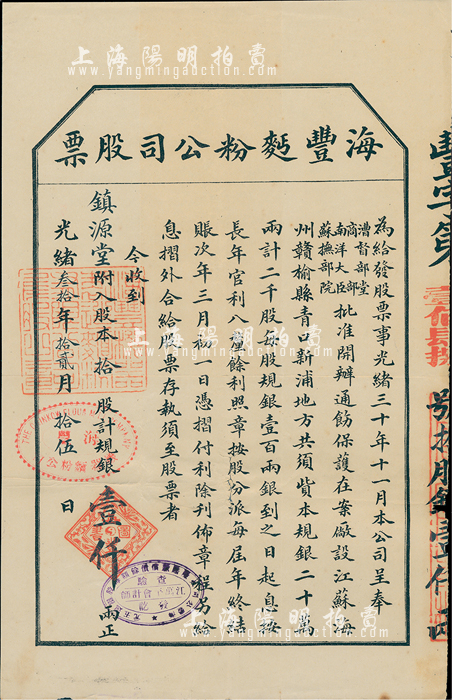 上海陽明拍賣
www.yangmingauction.com
海豐麪粉公司股票
為給發股票事光緒三十年十一月本公司呈奉
漕督部堂
商部
南洋大臣
蘇撫部院
批准開辦通飭保護在案廠設江蘇海
州贛榆縣青口新浦地方共須貲本規銀二十萬
兩計二千股每股規銀壹百兩銀到之日起息按
長年官利八釐餘利照章按股分派每屆年終結
賬次年三月初一日憑摺付利除刊佈章程另給
息摺外合給股票存執須至股票者
今收到
鎮源堂附入股本拾股計規銀壹仟兩正
光緒叁拾年拾貳月拾伍日
豐字第壹佰肆拾號拾股銀壹仟兩
查驗
江萬平會計師
登訖
上海陽明拍賣
www.yangmingauction.com